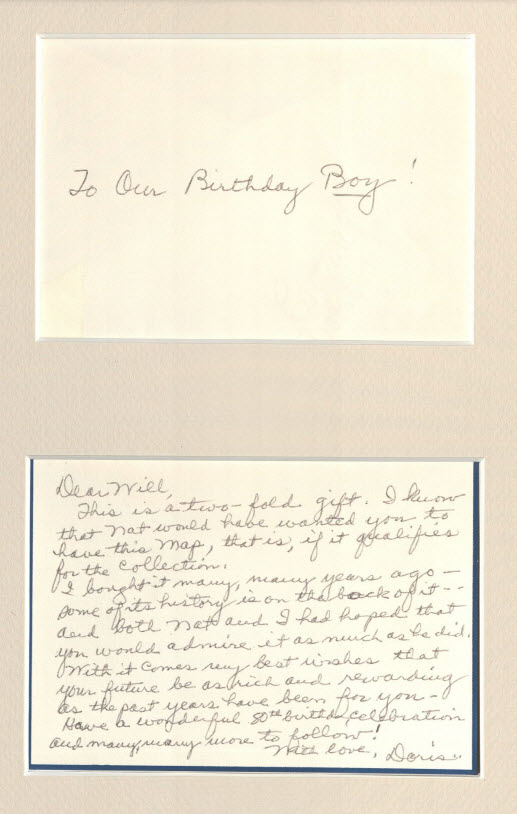 To Our Birthday Boy!
Dear Will,
This is a two-fold gift. I know
that Nat would have wanted you to
have this map, that is, if it qualifies
for the collection.
I bought it many, many years ago —
some of its history is on the back of it -
and both Nat and I had hoped that
you would admire it as much as he did.
With it comes my best wishes that
your future be as rich and rewarding
as the past years have been for you -
Have a wonderful 80th birth celebration
and many, many more to follow!
With love, Doris.